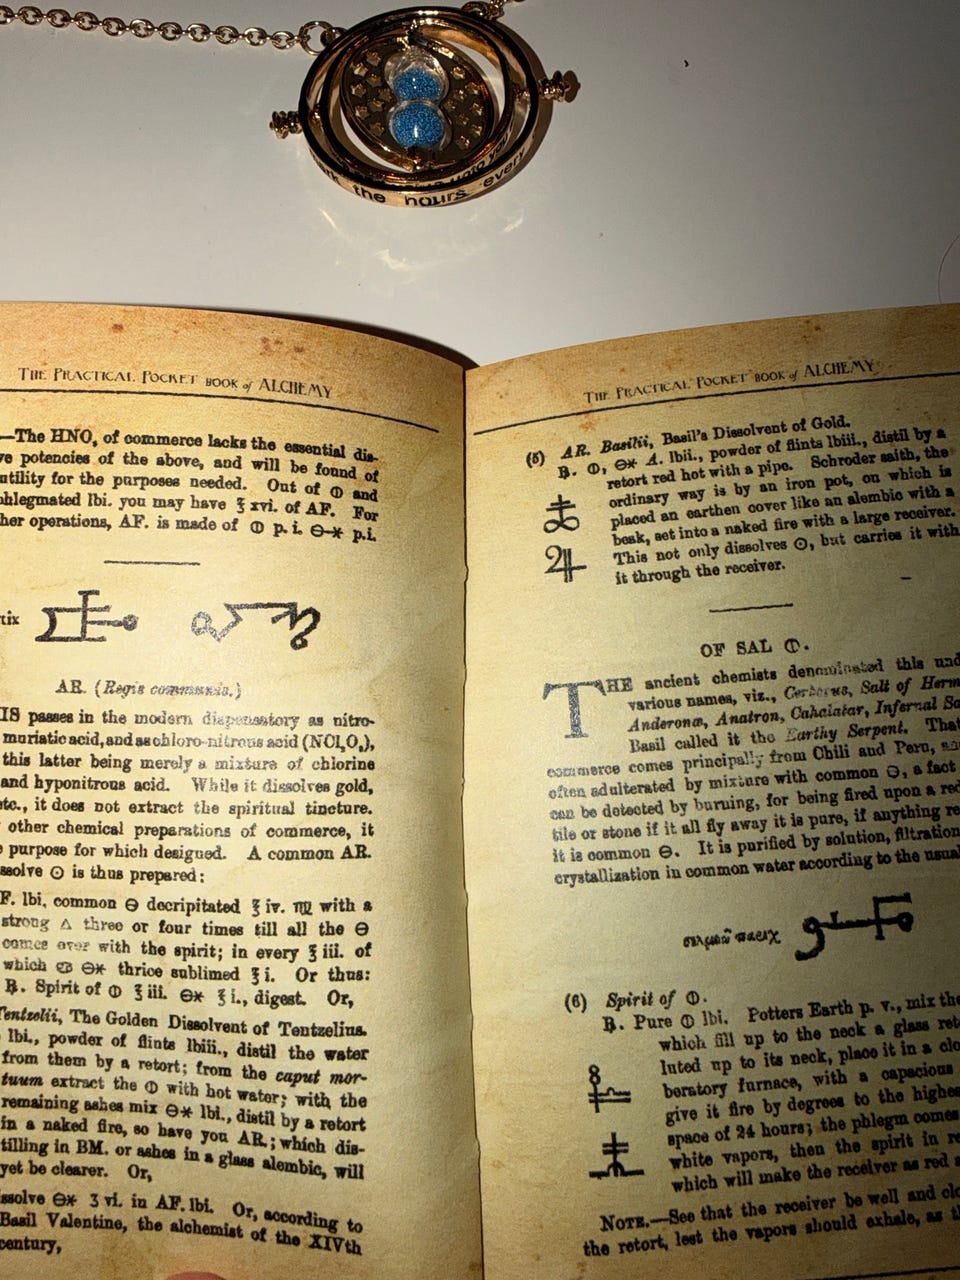 the hours every
THE PRACTICAL POCKET BOOK of ALCHEMY
—The HNO, of commerce lacks the essential dis-
potencies of the above, and will be found of
utility for the purposes needed. Out of 🜕 and
phlegmated lbi. you may have ℥ xvi. of AF. For
her operations, AF. is made of 🜕 p.i. 🜔* p.i.
tix
AR. (Regis communis.)
IS passes in the modern dispensatory as nitro-
muriatic acid, and as chloro-nitrous acid (NCl₂O₂),
this latter being merely a mixture of chlorine
and hyponitrous acid. While it dissolves gold,
etc., it does not extract the spiritual tincture.
other chemical preparations of commerce, it
purpose for which designed. A common AR.
ssolve ☉ is thus prepared:
F. lbi, common 🜔 decripitated ℥ iv. ♍ with a
strong 🜂 three or four times till all the 🜔
comes over with the spirit; in every ℥ iii. of
which 🜔* thrice sublimed ℥ i. Or thus:
℞. Spirit of 🜕 ℥ iii. 🜔* ℥ i., digest. Or,
Tentzelii, The Golden Dissolvent of Tentzelius.
lbi., powder of flints lbiii., distil the water
from them by a retort; from the caput mor-
tuum extract the 🜕 with hot water; with the
remaining ashes mix 🜔* lbi., distil by a retort
in a naked fire, so have you AR.; which dis-
tilling in BM. or ashes in a glass alembic, will
yet be clearer. Or,
ssolve 🜔* ʒ vi. in AF. lbi. Or, according to
Basil Valentine, the alchemist of the XIVth
century,
THE PRACTICAL POCKET BOOK of ALCHEMY
(5) AR. Basilii, Basil's Dissolvent of Gold.
℞. 🜕, 🜔* A. lbii., powder of flints lbiii., distil by a
retort red hot with a pipe. Schroder saith, the
ordinary way is by an iron pot, on which is
placed an earthen cover like an alembic with a
beak, set into a naked fire with a large receiver.
This not only dissolves ☉, but carries it with
it through the receiver.
OF SAL 🜕.
THE ancient chemists denominated this und
various names, viz., Cerberus, Salt of Herm
Anderonæ, Anatron, Cahalatar, Infernal Sa
Basil called it the Earthy Serpent. That
commerce comes principally from Chili and Peru, and
often adulterated by mixture with common 🜔, a fact
can be detected by burning, for being fired upon a red
tile or stone if it all fly away it is pure, if anything re
it is common 🜔. It is purified by solution, filtration
crystallization in common water according to the usual
(6) Spirit of 🜕.
℞. Pure 🜕 lbi. Potters Earth p. v., mix the
which fill up to the neck a glass ret
luted up to its neck, place it in a clo
beratory furnace, with a capacious
give it fire by degrees to the highe
space of 24 hours; the phlegm comes
white vapors, then the spirit in re
which will make the receiver as red a
NOTE.—See that the receiver be well and clo
the retort, lest the vapors should exhale, as t